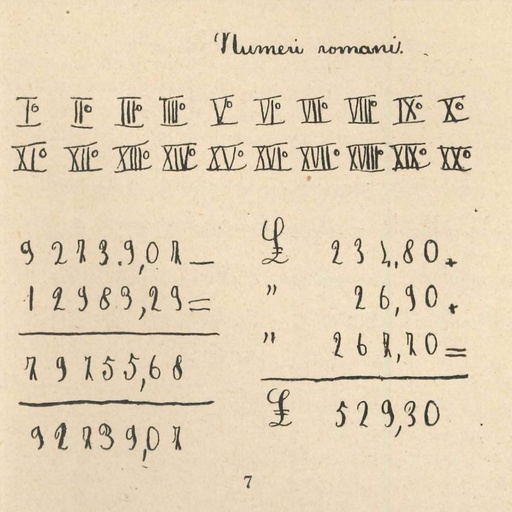 Numeri romani.
I° II° III° IIII° V° VI° VII° VIII° IX° X°
XI° XII° XIII° XIV° XV° XVI° XVII° XVIII° XIX° XX°
92739,07 —
12983,29 =
79755,68
92739,07
£ 234,80 +
" 26,90 +
" 267,70 =
£ 529,30
7